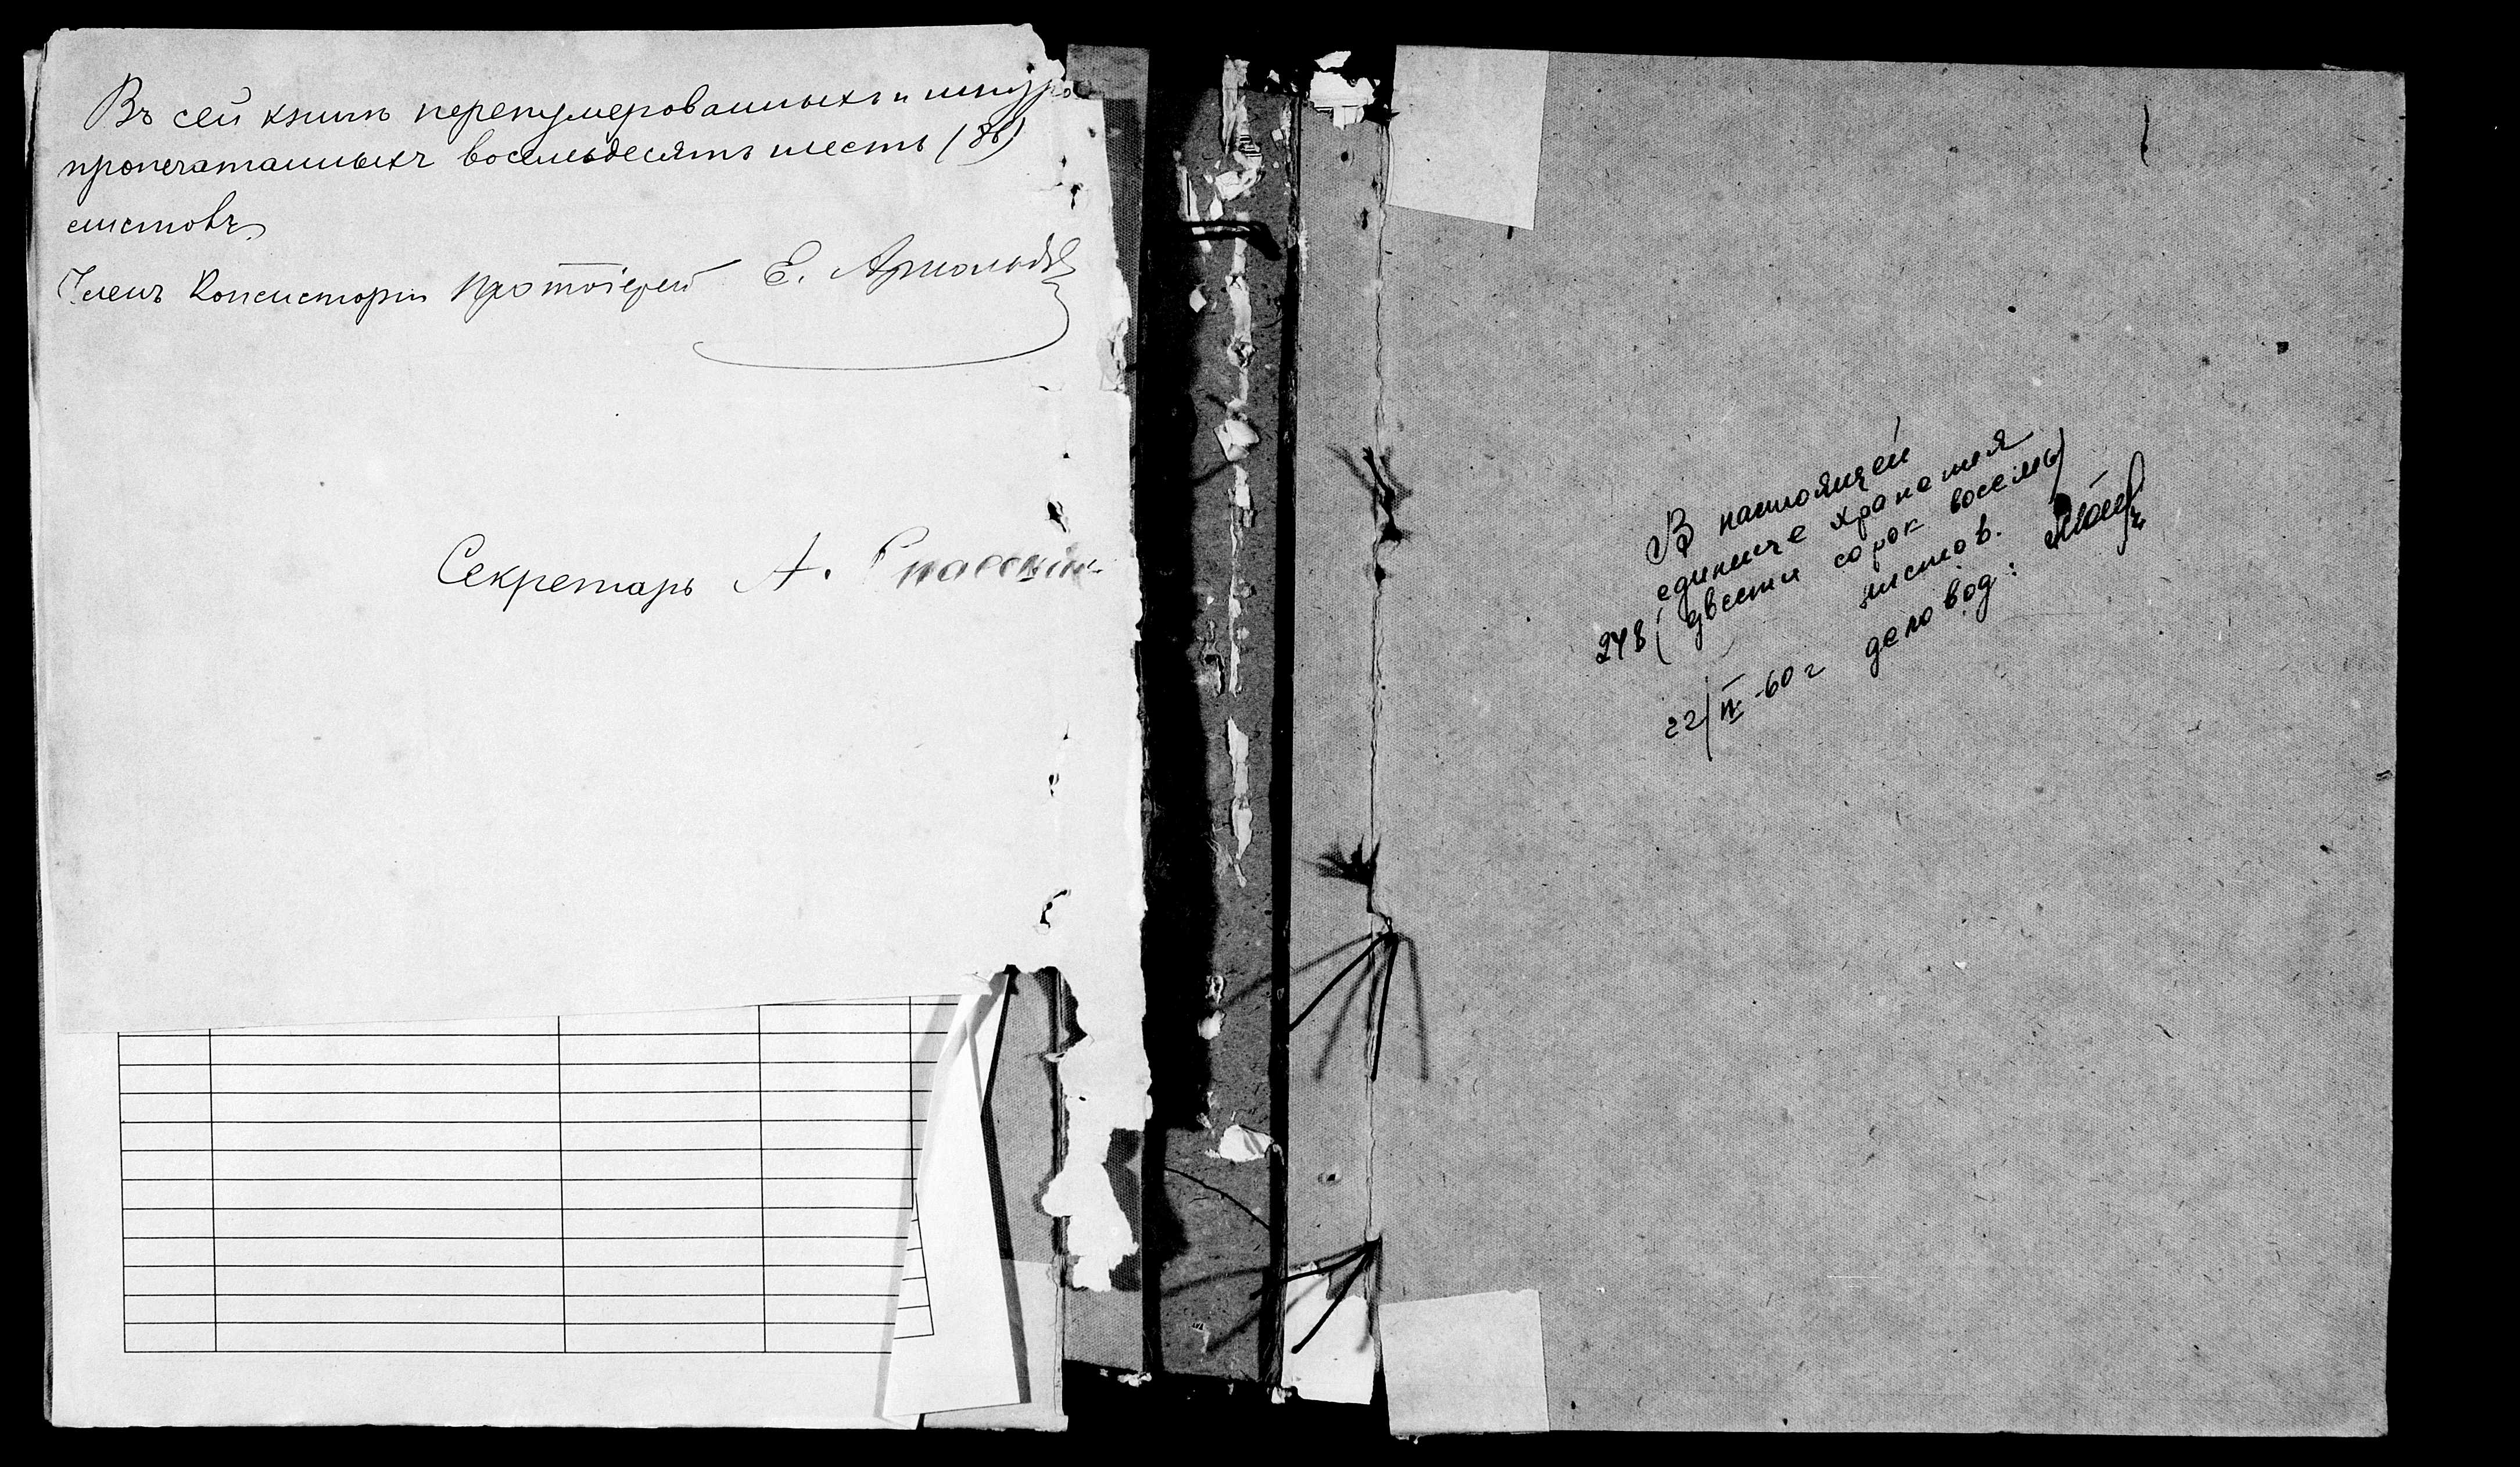 Въ сей книгѣ перенумерованныхъ и шнуро
пропечатанныхъ восемьдесятъ шесть (86)
листовъ.
Членъ Консисторіи Протоіерей Е. Арнольдъ
Секретарь А. Спасскій
В настоящей
единице хранения
248 (двести сорок восемь)
листов.
22/IV-60 г деловод: